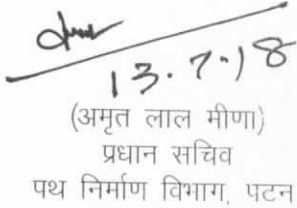 13.7.18
(अमृत लाल मीणा)
प्रधान सचिव
पथ निर्माण विभाग, पटन